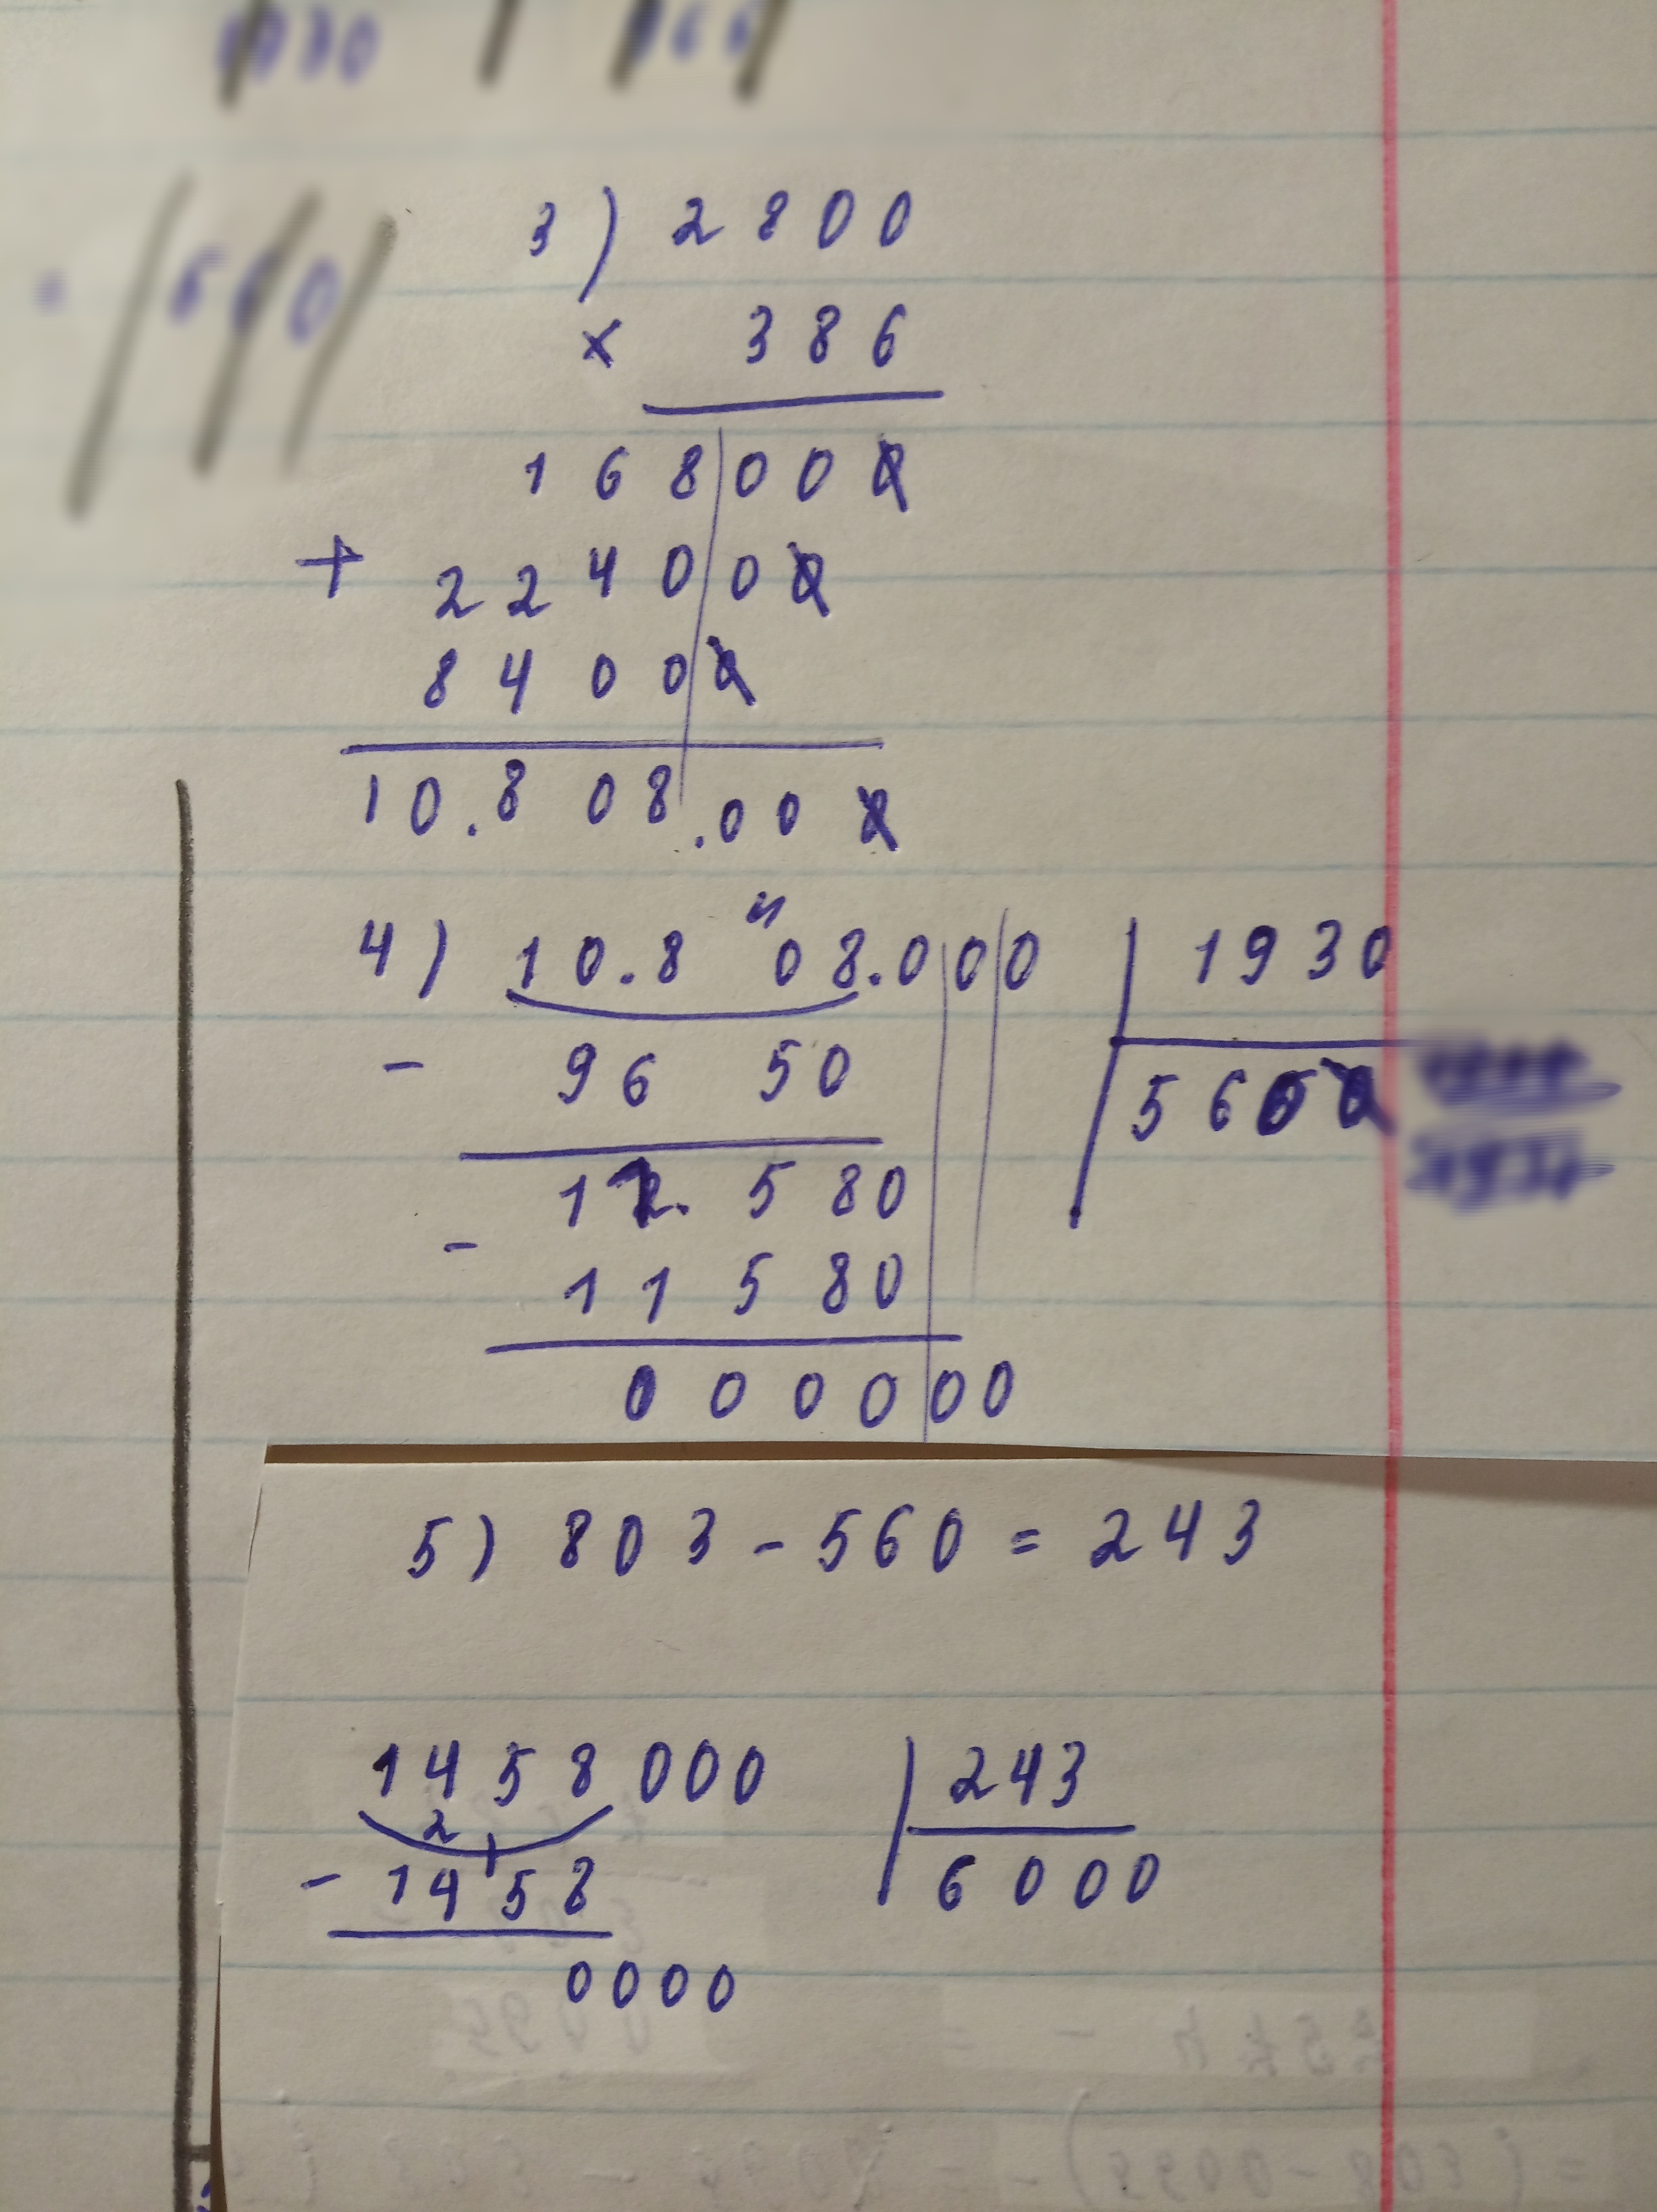 3) 2800
× 386
16800
+ 22400
8400
10.808.00
4) 10.808.000 1930
- 9650 560
11.580
- 11580
000000
5) 803 - 560 = 243
1458000 243
2 1
- 1458 6000
0000